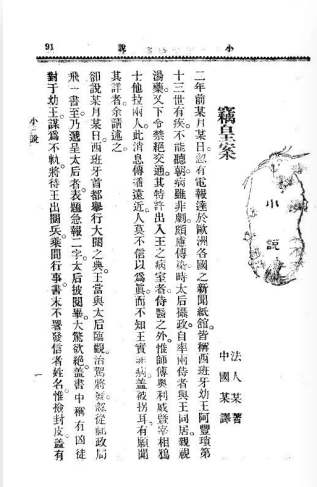 91
小說
小說
法人某著
中國某譯
竊皇案
二年前某月某日忽有電報達於歐洲各國之新聞紙館皆稱西班牙幼王阿豐瓊第
十三世有疾不能聽朝病雖非劇頗慮傳染時太后攝政自率兩侍者與王同居親視
湯藥又下令禁絕交通其特許出入王之病室者侍醫之外惟師傅奧利威曁宰相鴉
士他拉兩人此消息傳播遠近人莫不信以爲眞而不知王實非病蓋被拐耳有願聞
其詳者余請述之
卻說某月某日西班牙首都舉行大閱之典王當與太后臨觀治駕將發忽從郵政局
飛一書至乃遞呈太后者表題急報二字太后披閱畢大驚欲絕蓋書中稱有凶徒
對于幼王謀爲不軌將待王出閱兵乘間行事書末不署發信者姓名惟檢封皮蓋有
小說
一